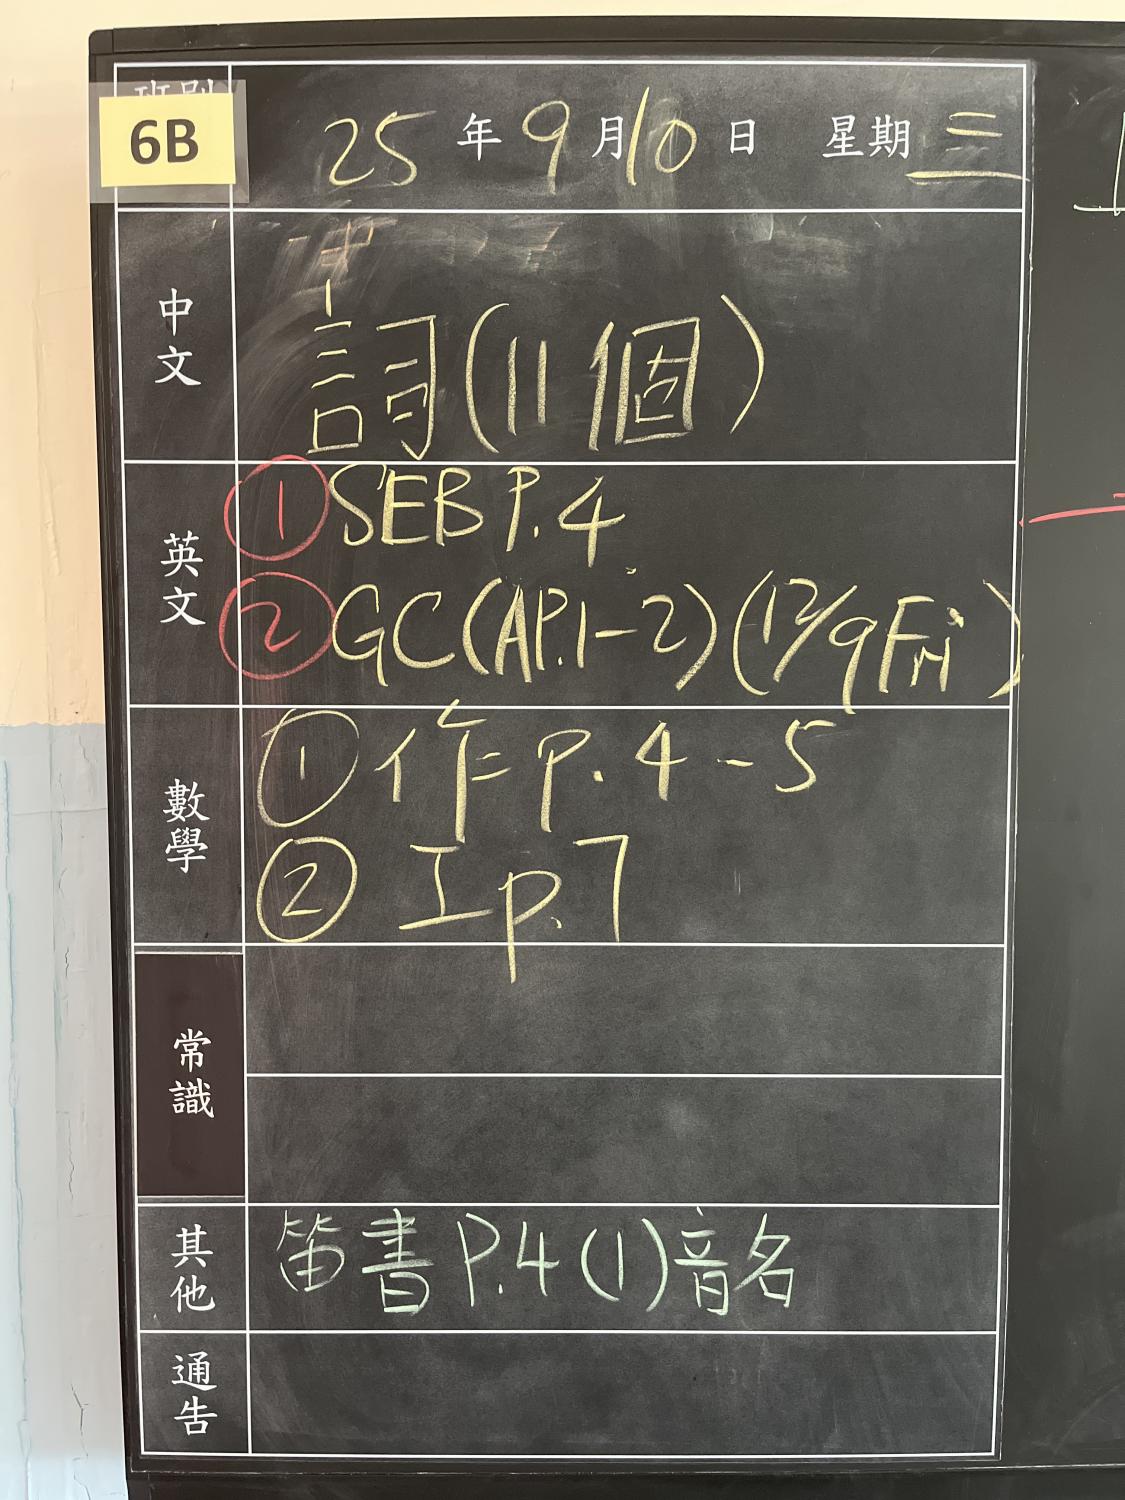 6B
25年9月10日 星期三
中文
詞(11個)
英文
① SEB P.4
② GC(AP.1-2)(12/9 Fri)
數學
① 作 P.4-5
② 工 p.7
常識
其他
笛書 P.4 (1) 音名
通告